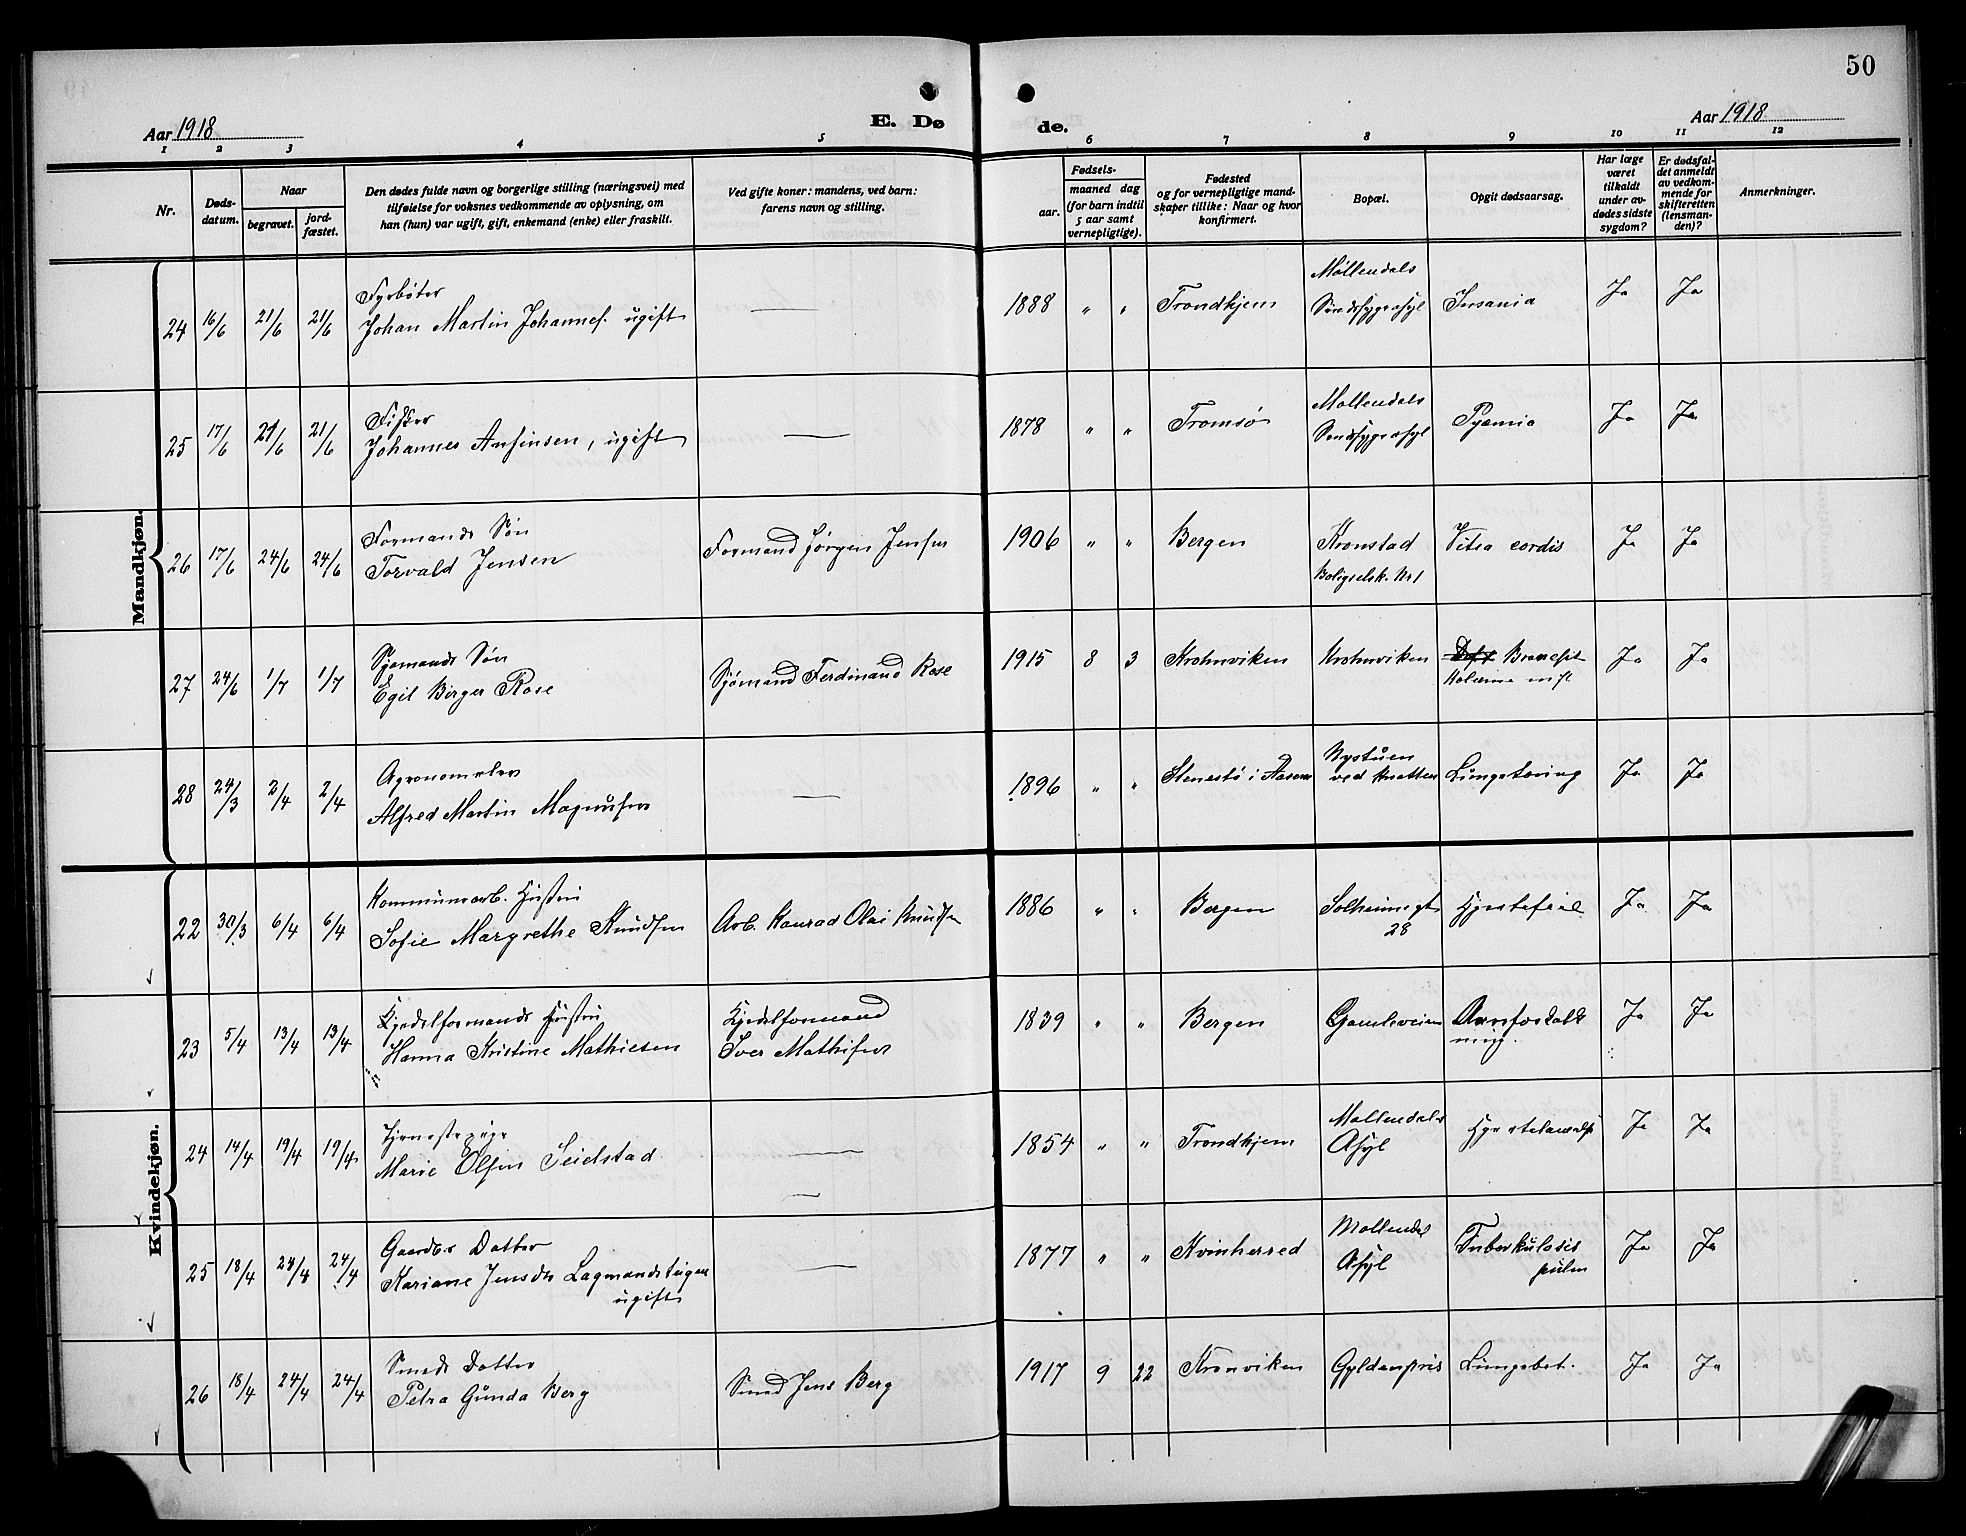 50
Aar 1918
E. Dø
de.
Aar 1918
1 2 3 4 5 6 7 8 9 10 11 12
Nr.
Døds-
datum.
Naar
begravet.
jord-
fæstet.
Den dødes fulde navn og borgerlige stilling (næringsvei) med
tilføielse for voksnes vedkommende av oplysning, om
han (hun) var ugift, gift, enkemand (enke) eller fraskilt.
Ved gifte koner: mandens, ved barn:
farens navn og stilling.
Fødsels-
aar.
maaned dag
(for barn indtil
5 aar samt
vernepligtige).
Fødested
og for vernepligtige mand-
skaper tillike: Naar og hvor
konfirmert.
Bopæl.
Opgit dødsaarsag.
Har læge
været
tilkaldt
under av-
dødes sidste
sygdom?
Er dødsfal-
det anmeldt
av vedkom-
mende for
skifteretten
(lensman-
den)?
Anmerkninger.
Mandkjøn.
24 16/6 21/6 21/6
Fyrbøter
Johan Martin Johannes. ugift
—
1888 " " Trondhjem
Møllendals
Sindssygeasyl
Insania Ja Ja
25 17/6 21/6 21/6
Fisker
Johannes Ansinsen, ugift
—
1878 " " Tromsø
Møllendals
Sindssygeasyl
Pyæmia Ja Ja
26 17/6 24/6 24/6
Formands Søn
Torvald Jensen
Formand Jørgen Jensen
1906 " " Bergen
Kronstad
Boligselsk. Nr 1
Vitea cordis Ja Ja
27 24/6 1/7 1/7
Sjømands Søn
Egil Birger Rose
Sjømand Ferdinand Rose
1915 8 3 Krohnviken Krohnviken
Ja Ja
28 24/3 2/4 2/4
Agronomelev
Alfred Martin Magnusen
—
1896 " " Stenestø i Aasene
Nystuen
ved Knatten
Lungetæring Ja Ja
Kvindekjøn.
22 30/3 6/4 6/4
Kommunearb. Hustru
Sofie Margrethe Knudsen
Arb. Konrad Olai Knudsen
1886 " " Bergen
Solheimsgt
28
Hjertefeil Ja Ja
23 5/4 13/4 13/4
Kjedelformands Hustru
Hanna Kristine Mathiesen
Kjedelformand
Iver Mathisen
1839 " " Bergen Gamleveien
Aareforkalk
ning.
Ja Ja
24 14/4 19/4 19/4
Tjenestepige
Marie Olsen Seidstad
—
1854 " " Trondhjem
Møllendals
Asyl
Ja Ja
25 18/4 24/4 24/4
Gaardbr Datter
Kariane Jensdtr Lagmandsteigen
ugift
—
1877 " " Kvinherred
Møllendal
Asyl
Tuberkulosis
pulm
Ja Ja
26 18/4 24/4 24/4
Smeds Datter
Petra Gunda Berg
Smed Jens Berg
1917 9 22 Kronviken Gyldenpris Lungebet. Ja Ja